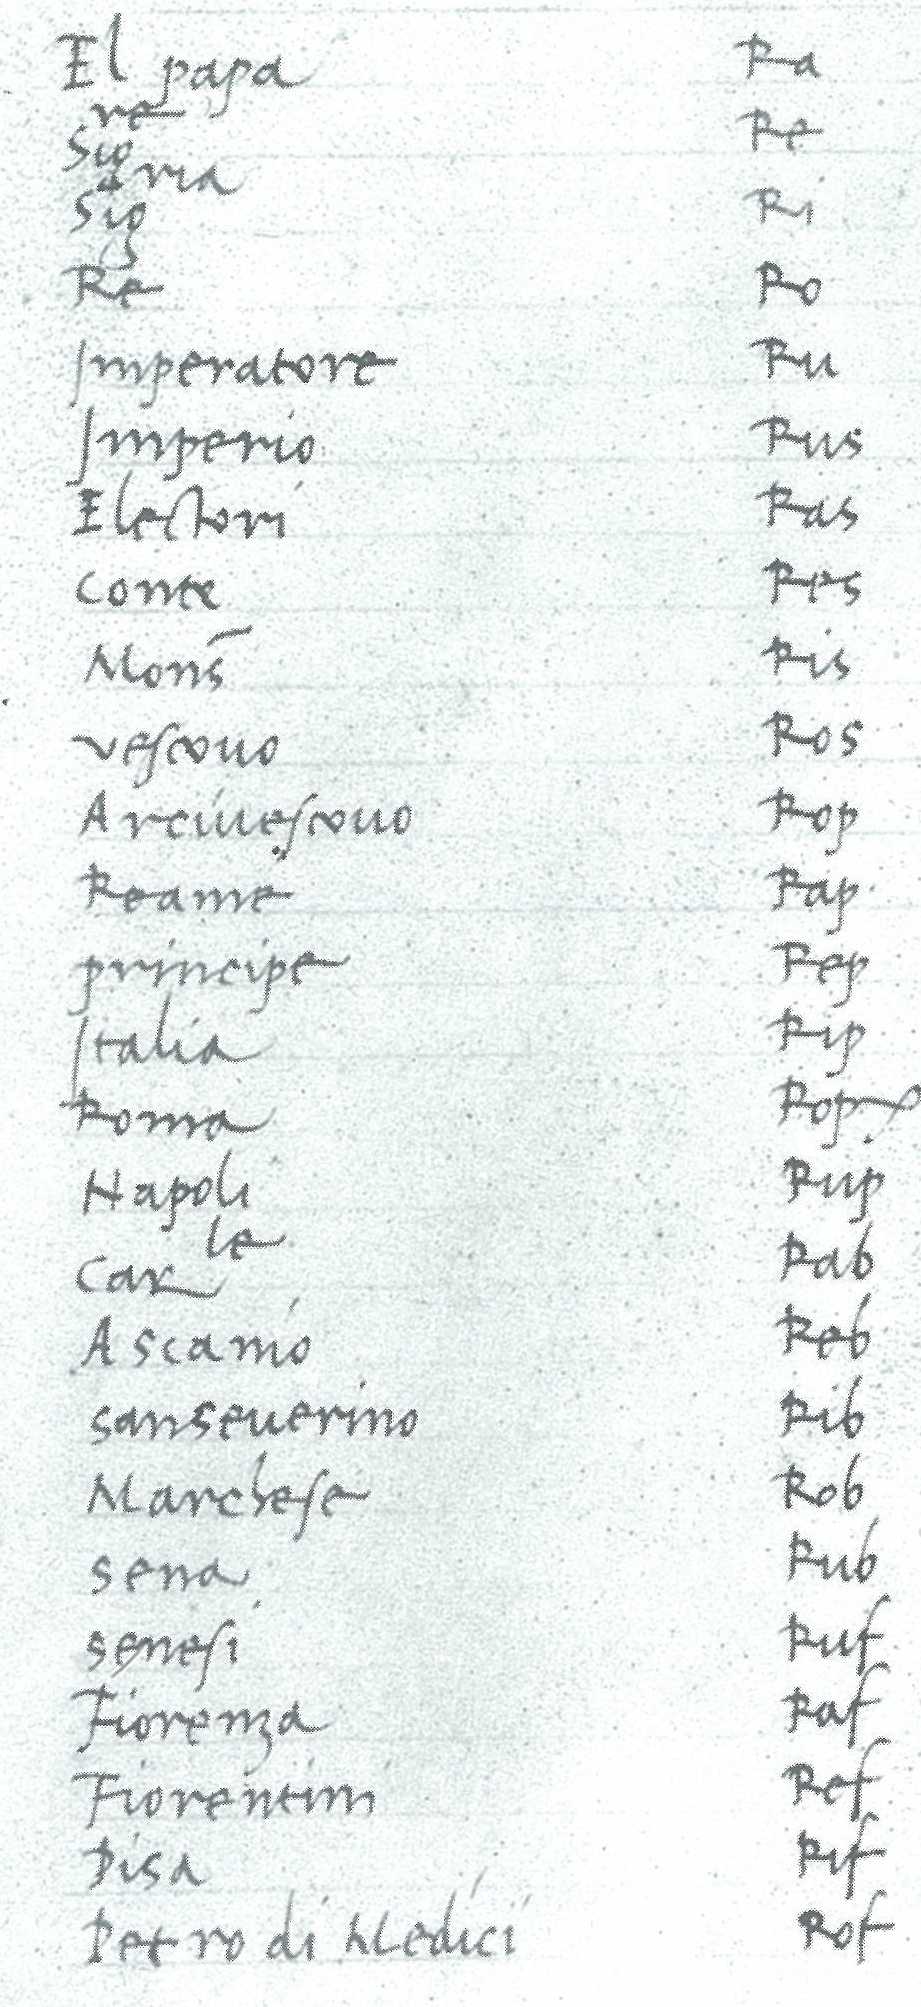 El papa Ra
Sig.re Re
Sig.ria Ri
Re Ro
Imperatore Ru
Imperio Rus
Electori Ras
Conte Res
Mons Ris
vescouo Ros
Arciuescouo Rop
Reame Rap
principe Rep
Italia Rip
Roma Rop
Napoli Rup
Car.le Rab
Ascanio Reb
sanseuerino Rib
Marchese Rob
sena Rub
senesi Ruf
Fiorenza Raf
Fiorentini Ref
Pisa Rif
Petro di Medici Rof